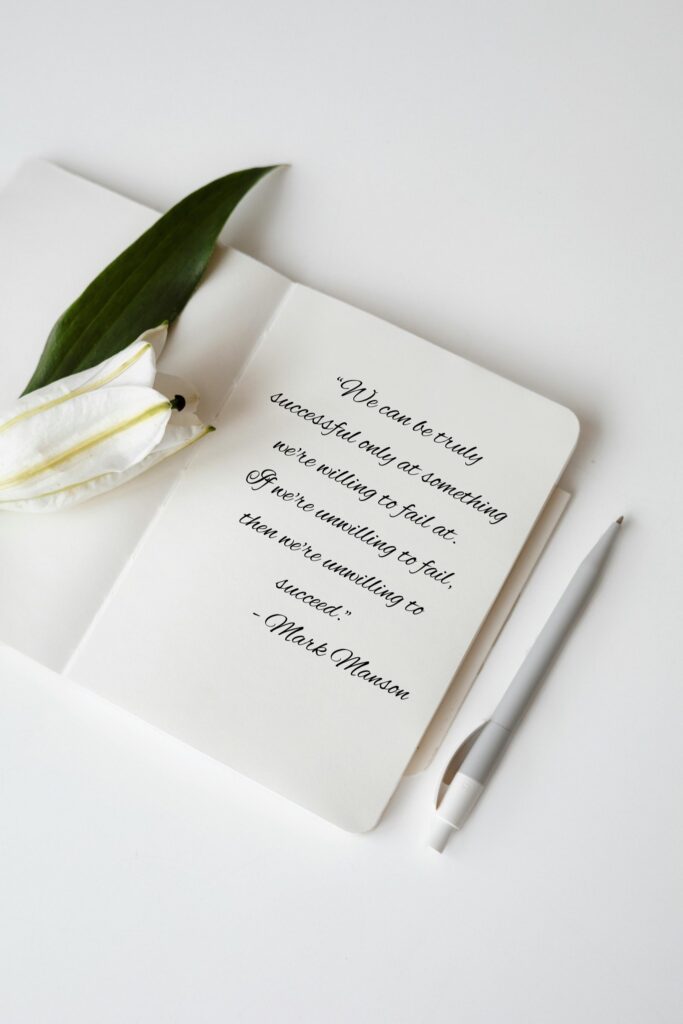 “We can be truly
successful only at something
we're willing to fail at.
If we're unwilling to fail,
then we're unwilling to
succeed.”
- Mark Manson